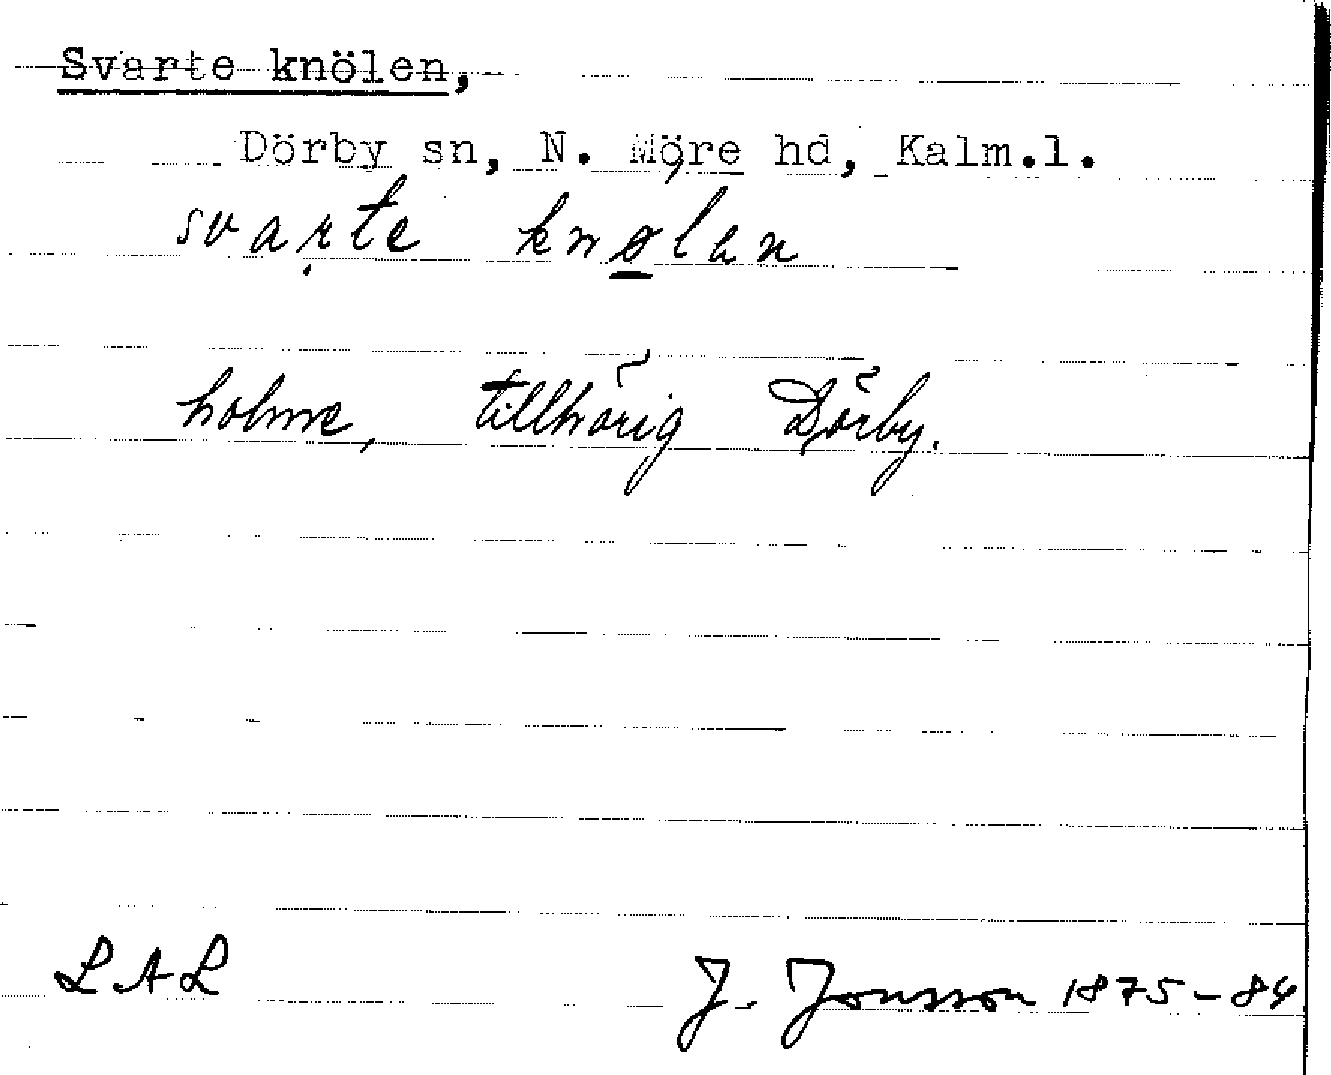 Svarte knölen,
Dörby sn, N. Möre hd, Kalm.l.
svaṛte knølan
holme, tillhörig Dörby.
LAL J. Jonsson 1875-84